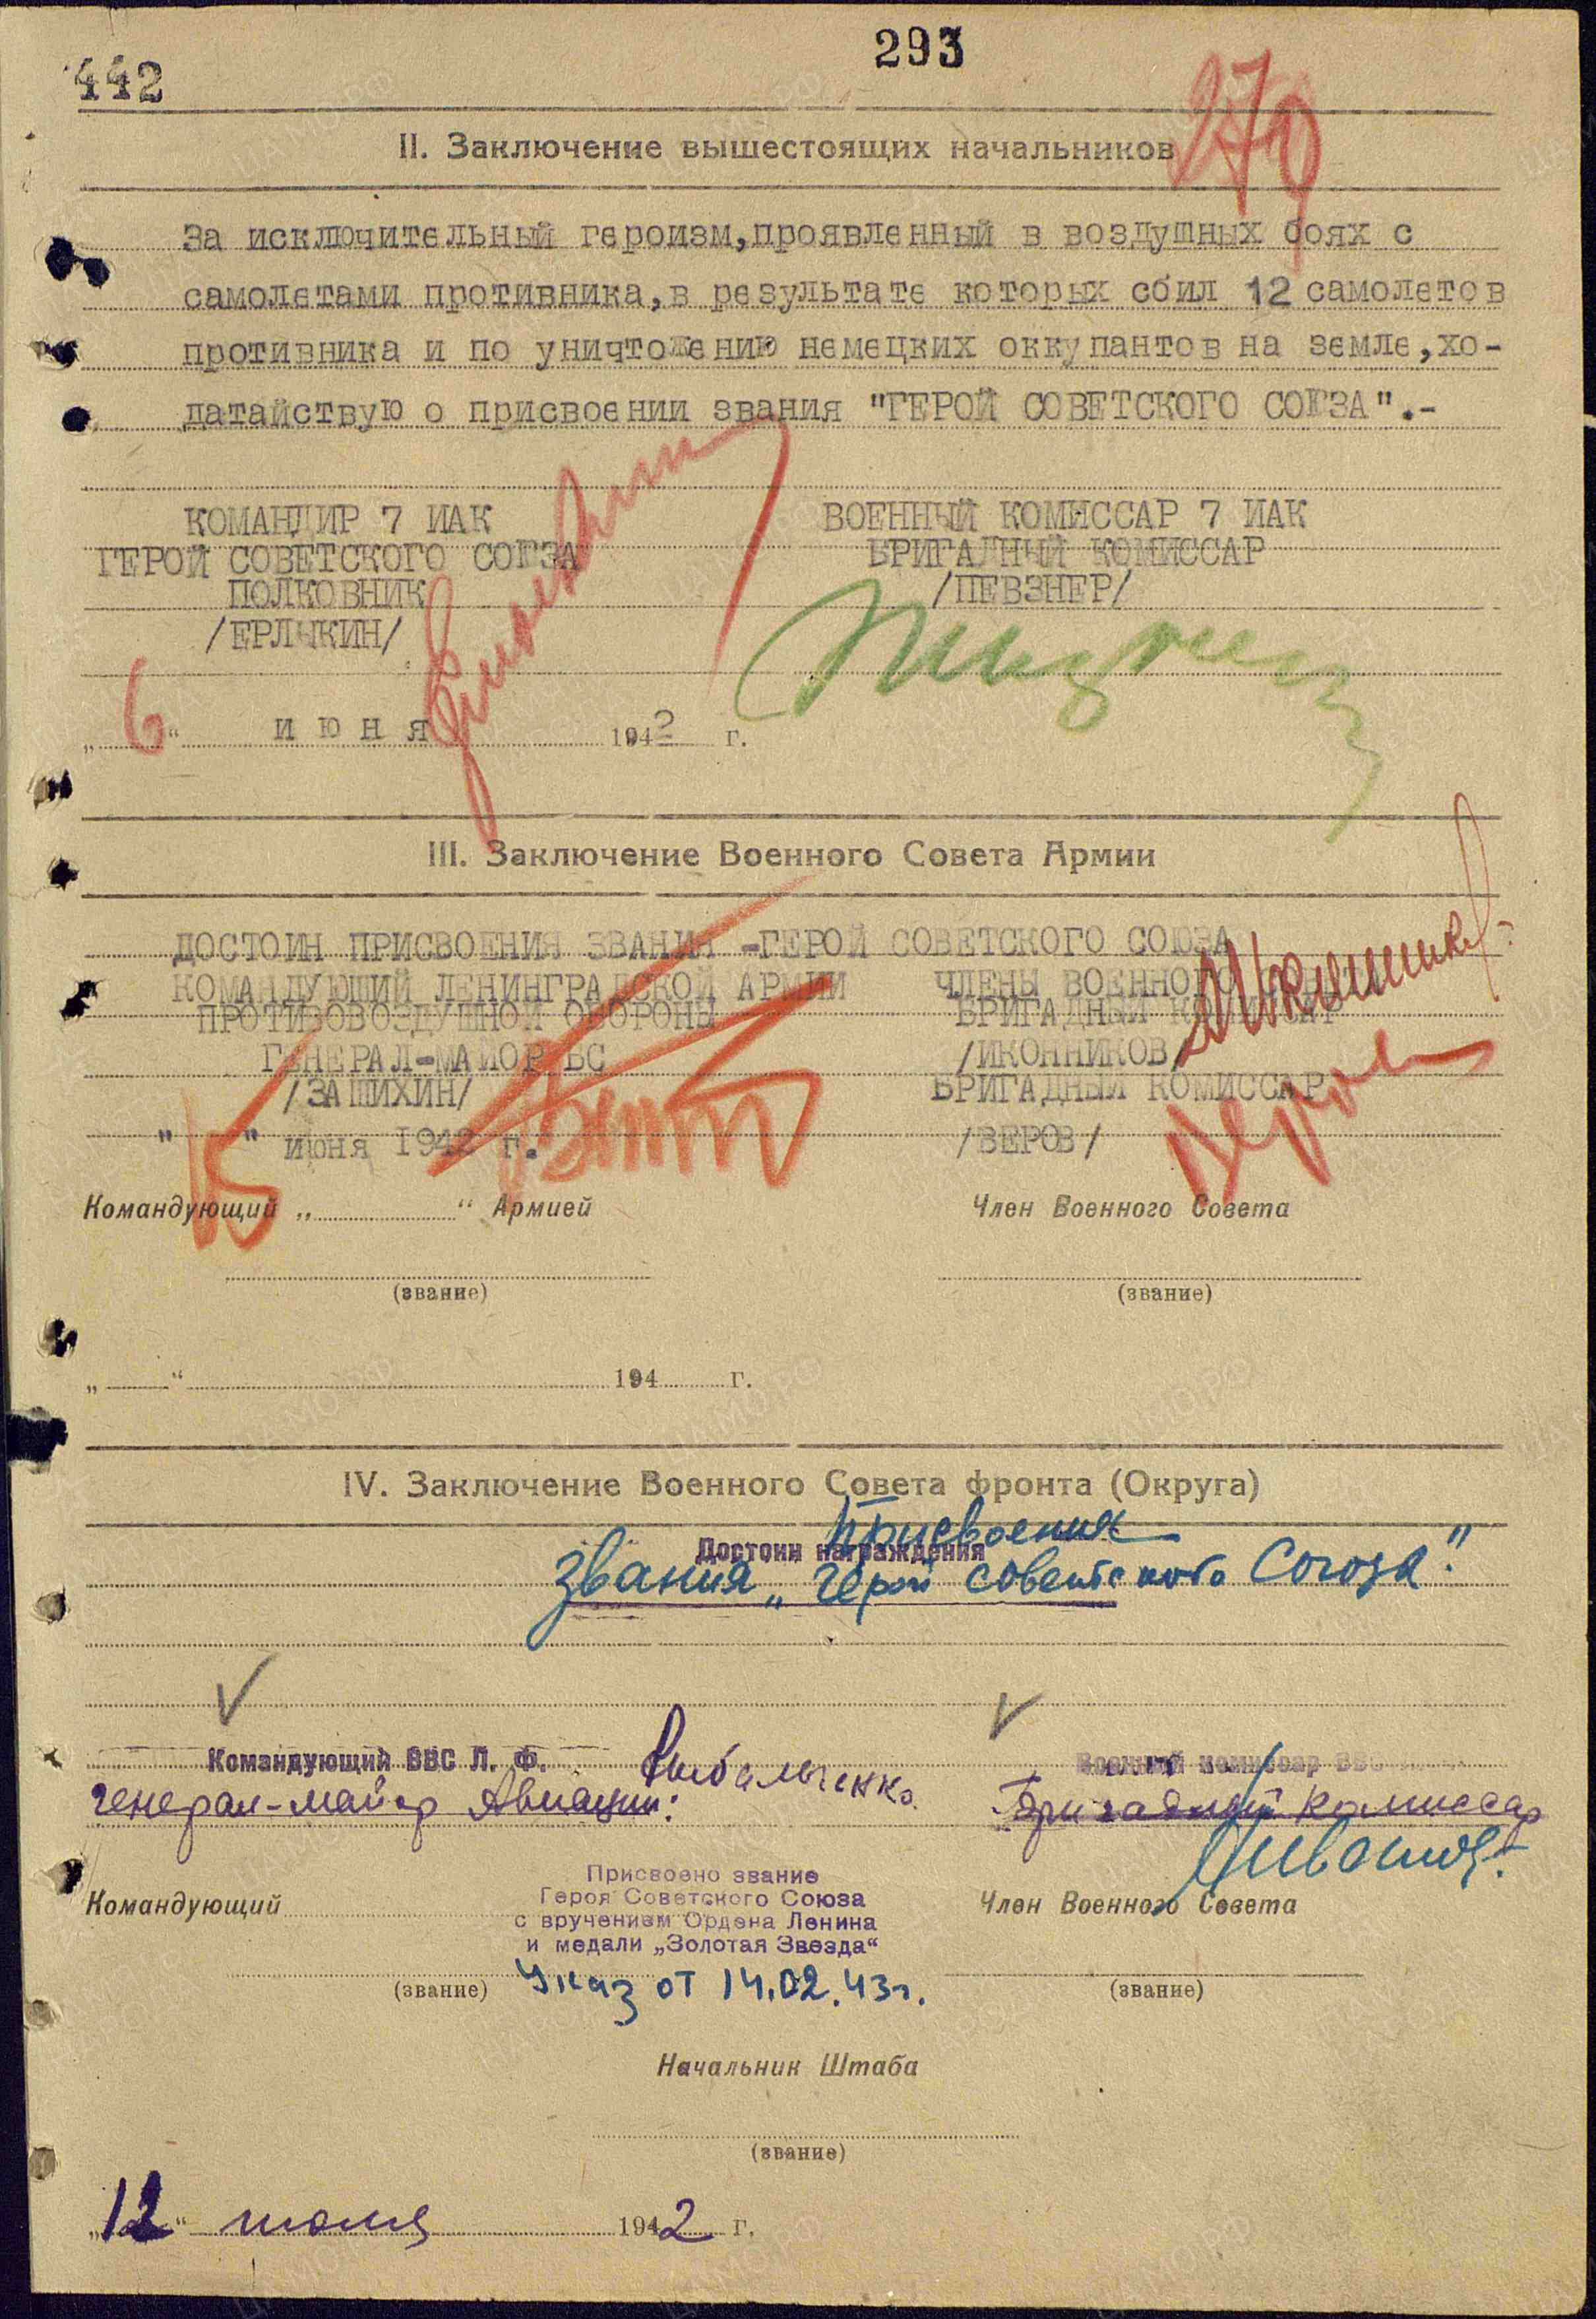 442
293
279
II. Заключение вышестоящих начальников
За исключительный героизм,проявленный в воздушных боях с
самолетами противника,в результате которых сбил 12 самолетов
противника и по уничтожению немецких оккупантов на земле,хо-
датайствую о присвоении звания "ГЕРОЙ СОВЕТСКОГО СОЮЗА".-
КОМАНДИР 7 ИАК
ГЕРОЙ СОВЕТСКОГО СОЮЗА
ПОЛКОВНИК
/ЕРЛЫКИН/
ВОЕННЫЙ КОМИССАР 7 ИАК
БРИГАДНЫЙ КОМИССАР
/ПЕВЗНЕР/
„6“ июня 1942 г.
III. Заключение Военного Совета Армии
ДОСТОИН ПРИСВОЕНИЯ ЗВАНИЯ -ГЕРОЙ СОВЕТСКОГО СОЮЗА
КОМАНДУЮЩИЙ ЛЕНИНГРАДСКОЙ АРМИИ
ПРОТИВОВОЗДУШНОЙ ОБОРОНЫ
ГЕНЕРАЛ-МАЙОР БС
/ЗАШИХИН/
" 15 " июня 1942 г.
ЧЛЕНЫ ВОЕННОГО
БРИГАДНЫЙ КОМИССАР
/ИКОННИКОВ/
БРИГАДНЫЙ КОМИССАР
/ВЕРОВ/
Командующий „ “ Армией
Член Военного Совета
(звание)
(звание)
„ “ 194 г.
IV. Заключение Военного Совета фронта (Округа)
присвоения
Достоин награждения
звания „Герой Советского Союза".
Командующий ВВС Л. Ф.
генерал-майор Авиации: Рыбальченко
Военный комиссар ВВС
Бригадный комиссар
Командующий
Член Военного Совета
Присвоено звание
Героя Советского Союза
с вручением Ордена Ленина
и медали „Золотая Звезда“
Указ от 14.02.43г.
(звание)
(звание)
Начальник Штаба
(звание)
„12“ июля 1942 г.